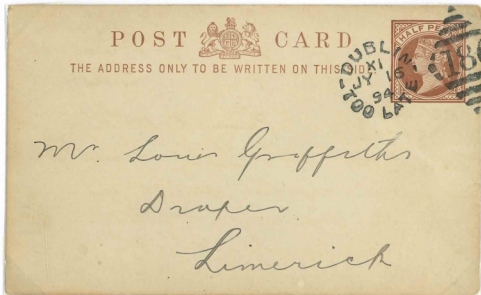 POST CARD
THE ADDRESS ONLY TO BE WRITTEN ON THIS SIDE
HALF PENNY
DUBLIN
XI
JY 16
94
TOO LATE
186
Mr. Louis Griffiths
Draper
Limerick